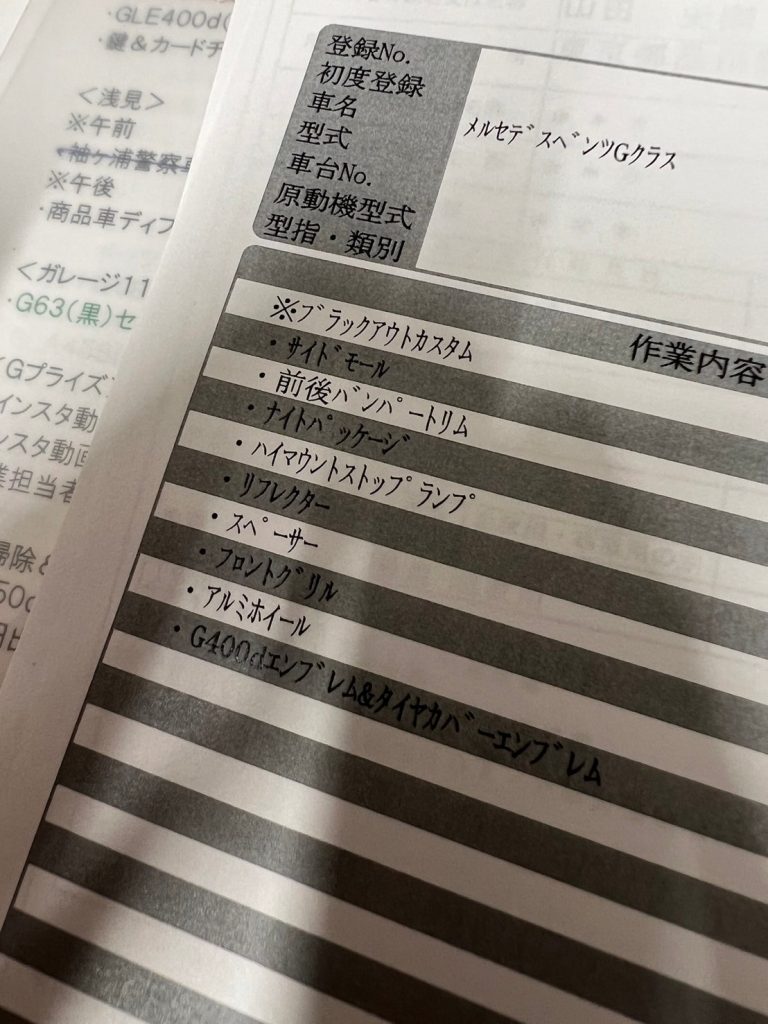 ・GLE400d(
・鍵&カードチ
<浅見>
※午前
・袖ヶ浦警察
※午後
・商品車ディフ
<ガレージ11
・G63(黒)セ
Gプライズ
インスタ動
ンスタ動画
業担当者
掃除&
登録No.
初度登録
車名
型式
車台No.
原動機型式
型指・類別
メルセデスベンツGクラス
作業内容
※ブラックアウトカスタム
・サイドモール
・前後バンパートリム
・ナイトパッケージ
・ハイマウントストップランプ
・リフレクター
・スペーサー
・フロントグリル
・アルミホイール
・G400dエンブレム&タイヤカバーエンブレム